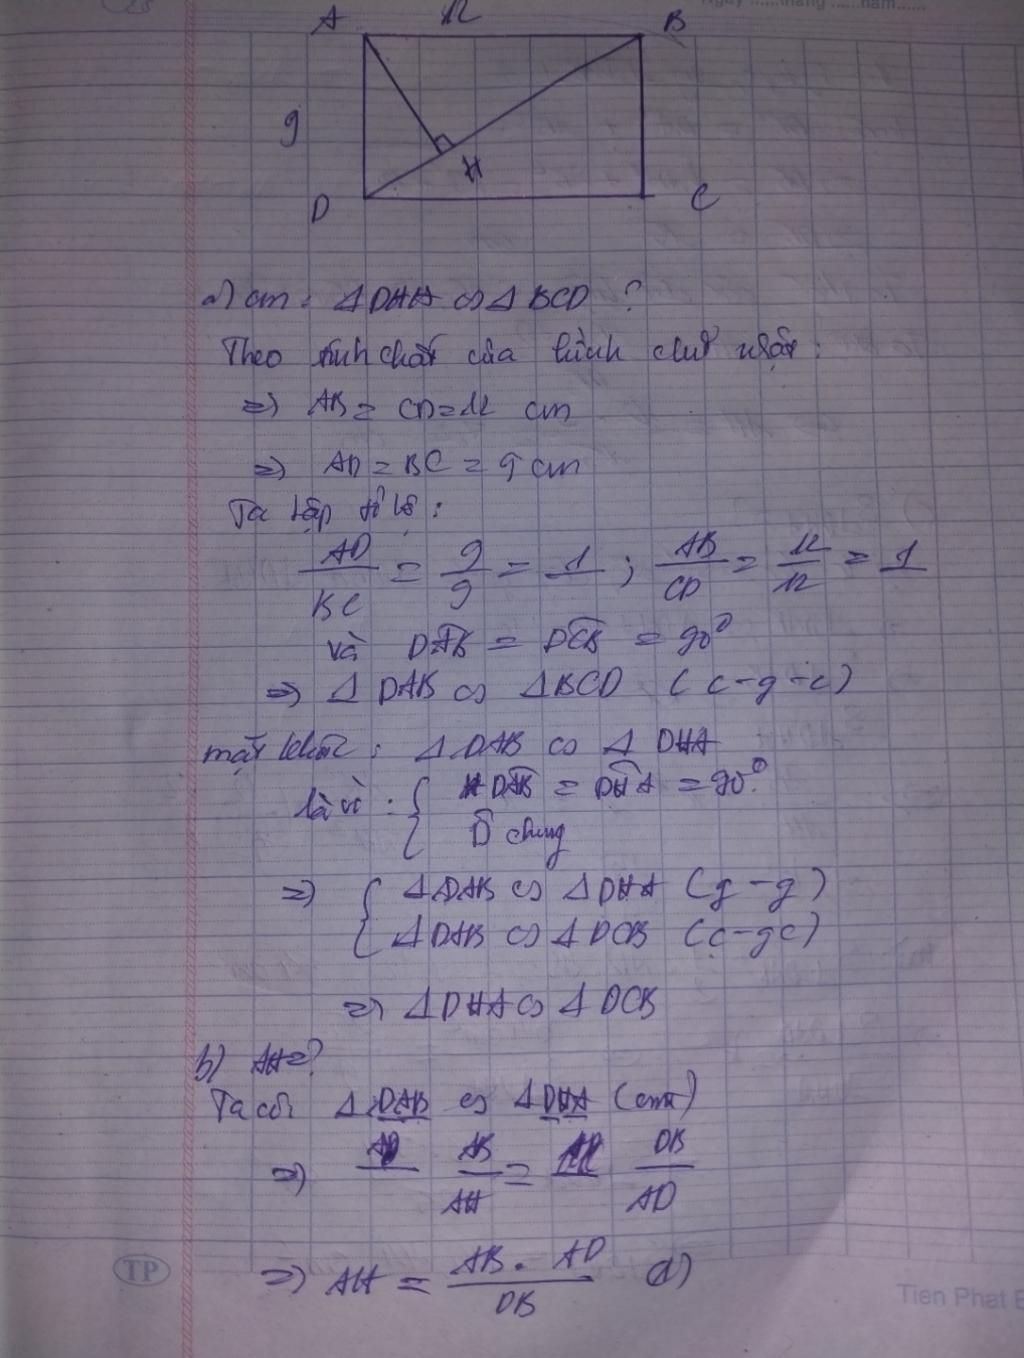 Ngày ......tháng ......năm......
A 12 B
9
H
D C
a) cm: Δ DHA ∽ Δ BCD ?
Theo tính chất của hình chữ nhật:
=> AB = CD = 12 cm
=> AD = BC = 9 cm
Ta lập tỉ lệ:
AD/BC = 9/9 = 1 ; AB/CD = 12/12 = 1
và DÂB = DĈB = 90°
=> Δ DAB ∽ Δ BCD (c-g-c)
mặt khác: Δ DAB ∽ Δ DHA
là vì: { DÂB = DĤA = 90°
D̂ chung
=> { Δ DAB ∽ Δ DHA (g-g)
Δ DAB ∽ Δ DCB (c-gc)
=> Δ DHA ∽ Δ DCB
b) AH = ?
Ta có: Δ DAB ∽ Δ DHA (cmt)
=> AB/AH = DB/AD
=> AH = AB . AD/DB
TP
Tien Phat